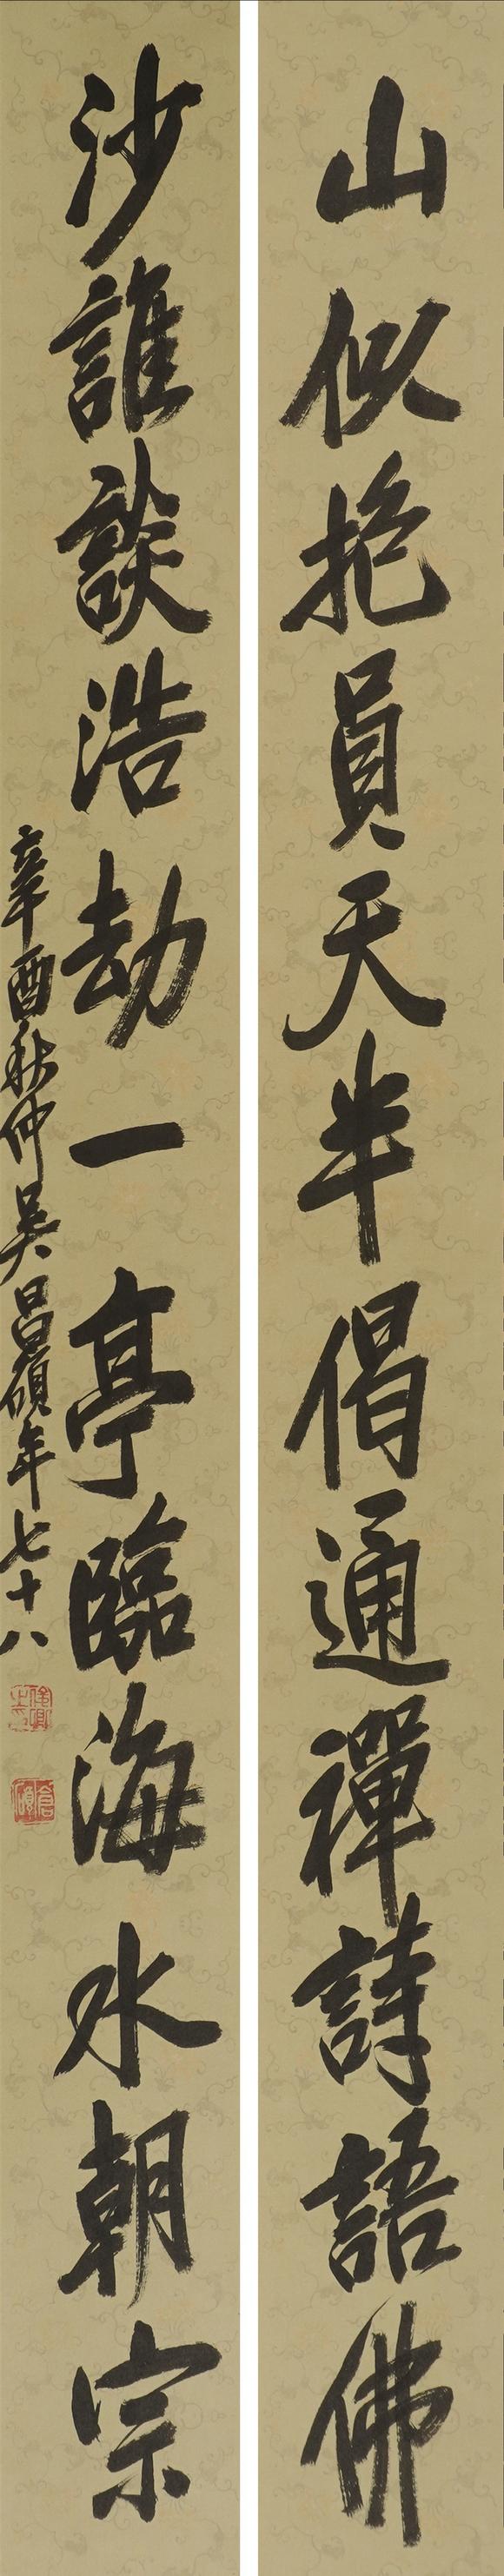 山似抱員天半偈通禪詩語佛
沙誰談浩劫一亭臨海水朝宗
辛酉秋仲吳昌碩年七十八
俊卿之印
倉碩